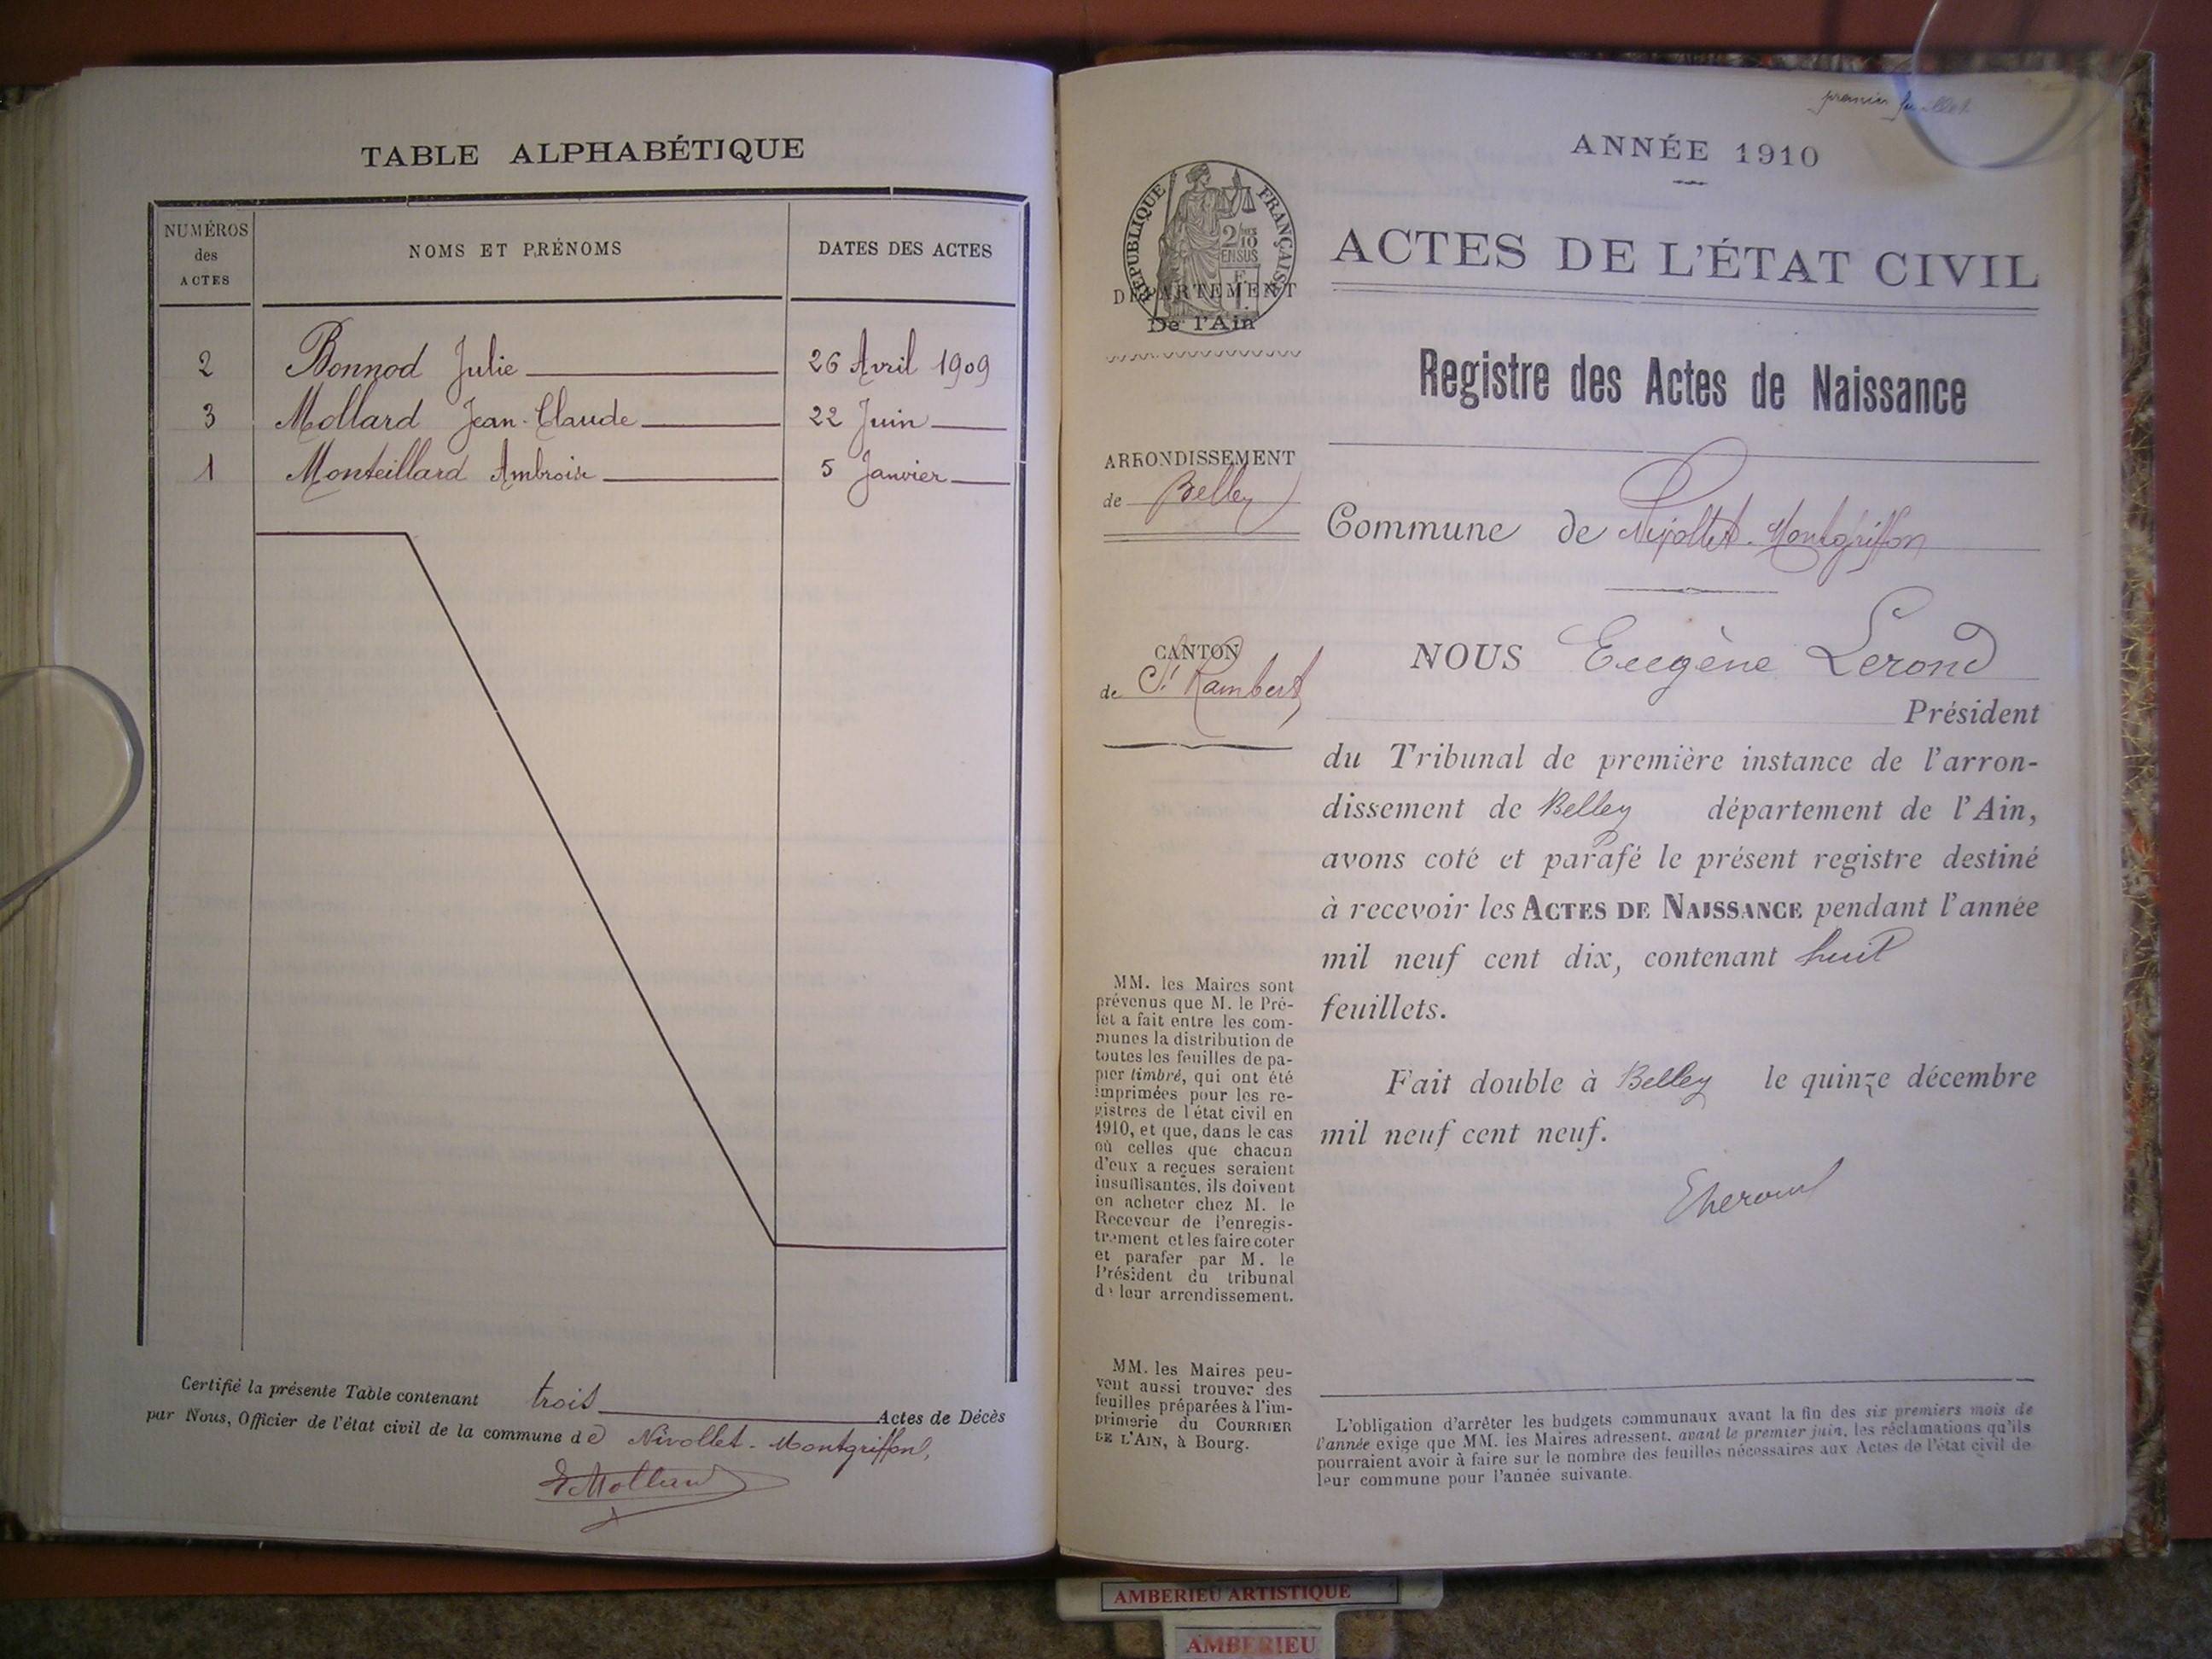 TABLE ALPHABÉTIQUE
NUMÉROS des ACTES
NOMS ET PRÉNOMS
DATES DES ACTES
2 Bonnod Julie 26 Avril 1909
3 Mollard Jean-Claude 22 Juin
1 Monteillard Ambroise 5 Janvier
Certifié la présente Table contenant trois Actes de Décès
par Nous, Officier de l'état civil de la commune de Nivollet-Montgriffon,
Mollard
premier feuillet
ANNÉE 1910
RÉPUBLIQUE FRANÇAISE
2/10
EN SUS
DÉPARTEMENT
De l'Ain
ACTES DE L'ÉTAT CIVIL
Registre des Actes de Naissance
ARRONDISSEMENT
de Belley
Commune de Nivollet-Montgriffon
CANTON
de St Rambert
NOUS Eugène Lerond
Président
du Tribunal de première instance de l'arron-
dissement de Belley département de l'Ain,
avons coté et parafé le présent registre destiné
à recevoir les ACTES DE NAISSANCE pendant l'année
mil neuf cent dix, contenant huit
feuillets.
Fait double à Belley le quinze décembre
mil neuf cent neuf.
MM. les Maires sont
prévenus que M. le Pré-
fet a fait entre les com-
munes la distribution de
toutes les feuilles de pa-
pier timbré, qui ont été
imprimées pour les re-
gistres de l'état civil en
1910, et que, dans le cas
où celles que chacun
d'eux a reçues seraient
insuffisantes, ils doivent
en acheter chez M. le
Receveur de l'enregis-
trement et les faire coter
et parafer par M. le
Président du tribunal
de leur arrondissement.
MM. les Maires peu-
vent aussi trouver des
feuilles préparées à l'im-
primerie du COURRIER
DE L'AIN, à Bourg.
L'obligation d'arrêter les budgets communaux avant la fin des six premiers mois de
l'année exige que MM. les Maires adressent, avant le premier juin, les réclamations qu'ils
pourraient avoir à faire sur le nombre des feuilles nécessaires aux Actes de l'état civil de
leur commune pour l'année suivante.
AMBERIEU ARTISTIQUE
AMBERIEU